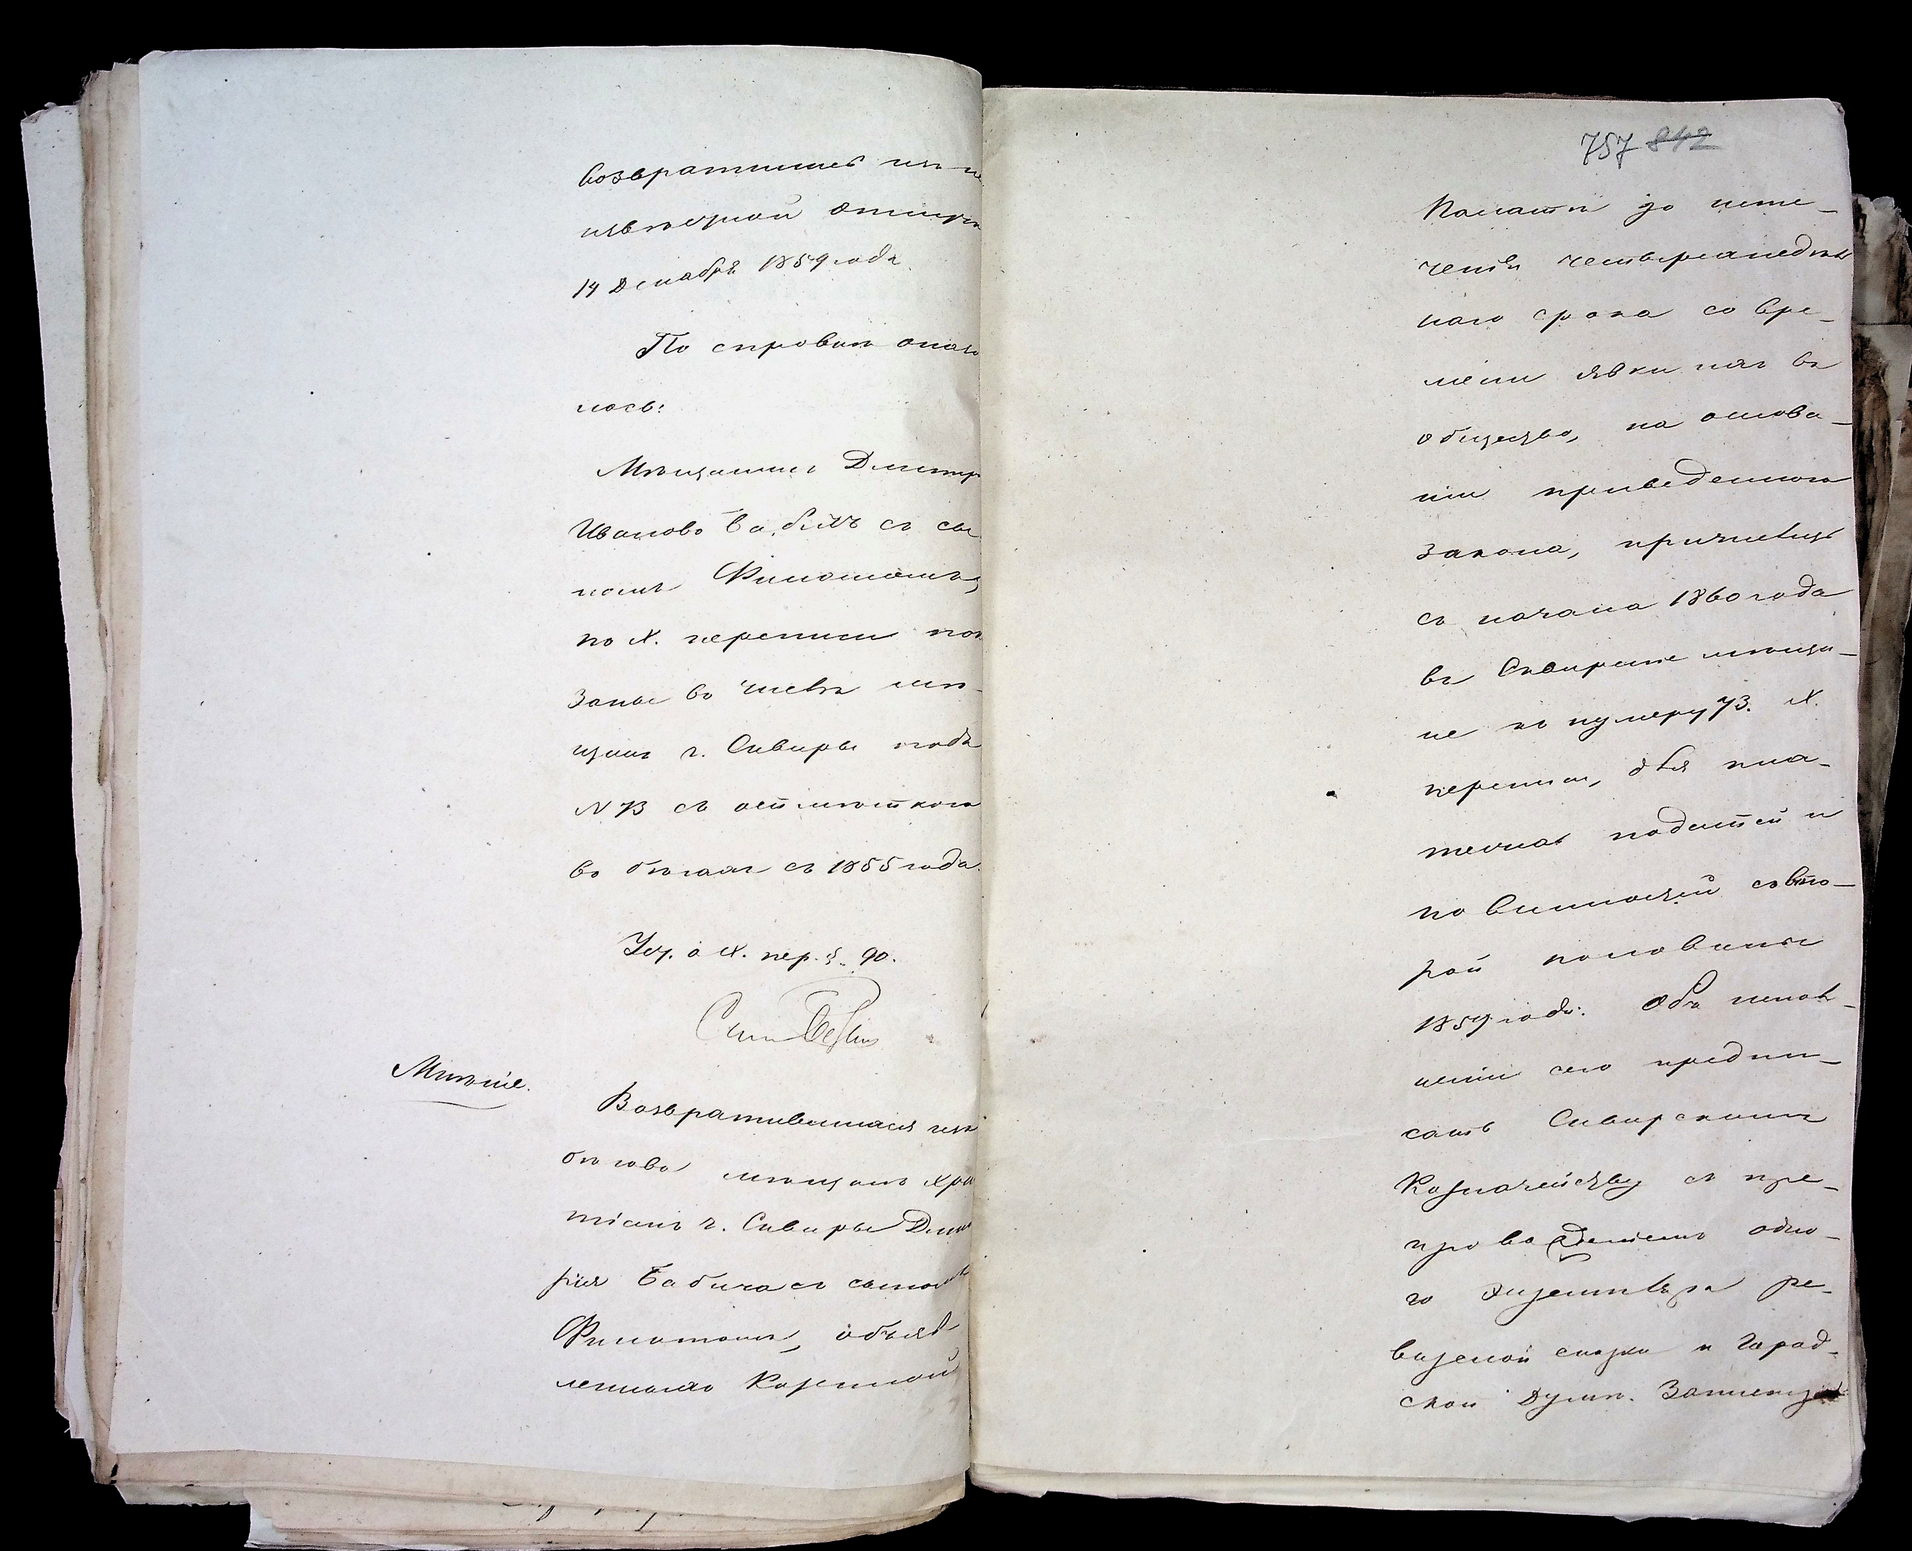 возвратились изъ не
извѣстной отлучки
14 Декабря 1859 года.
По справкѣ оказа
лось:
Мѣщанинъ Дмитр
Ивановъ Бабичъ съ сы
номъ Филотомъ,
по X. переписи пока
заны въ числѣ мѣ-
щанъ г. Сквиры подъ
N 73 съ отмѣткою
въ бѣгахъ съ 1855 года.
Уст. о X. пер. § 90.
Мнѣніе.
Возвратившихся изъ
бѣговъ мѣщанъ хри
тіанъ г. Сквиры Дмит
рія Бабича съ сыномъ
Филотомъ, объяв
леннымъ Казенной
757 842
Палатѣ до исте-
ченія четырехнедѣль
наго срока со вре-
мени явки ихъ въ
общество, на основа-
ніи приведеннаго
закона, причислить
съ начала 1860 года
въ Сквирскіе мѣща-
не къ нумеру 73. X.
переписи, для пла-
тежа податей и
повинностей со вто-
рой половины
1859 года. Объ испол-
неніи сего предпи-
сать Сквирскому
Казначейству съ пре-
провожденіемъ одно-
го экземпляра ре-
визской сказки и Город-
ской Думѣ.